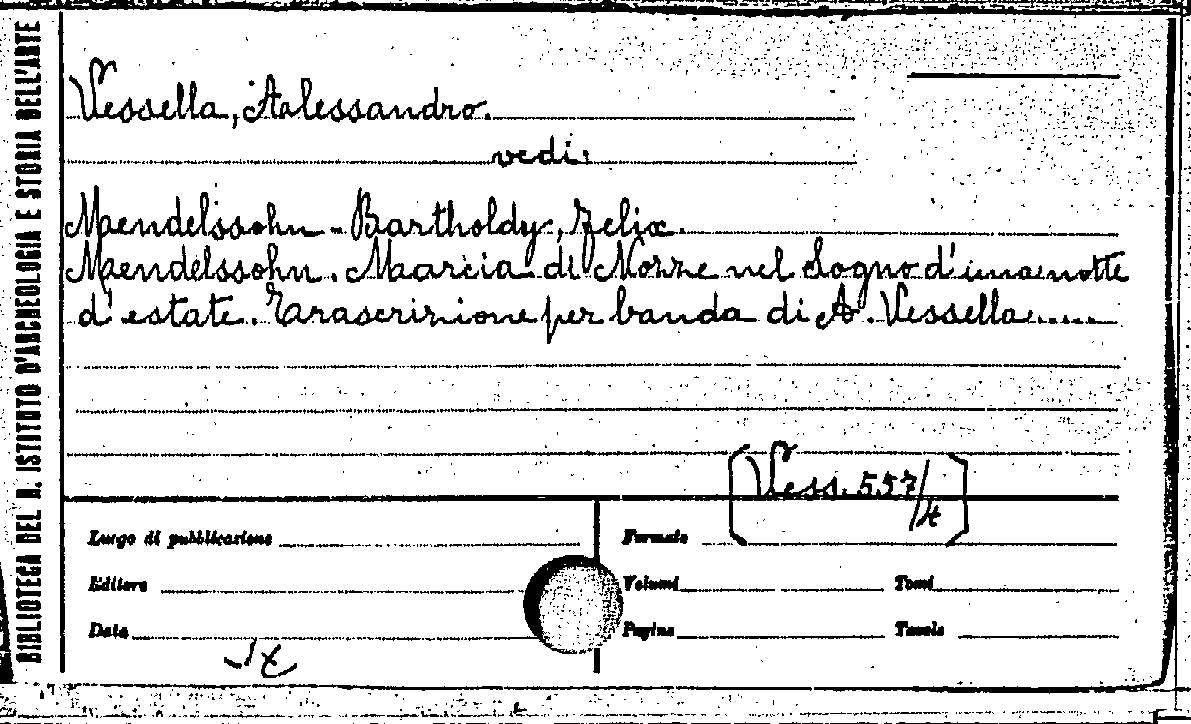 BIBLIOTECA DEL R. ISTITUTO D'ARCHEOLOGIA E STORIA DELL'ARTE
Vessella, Alessandro.
vedi:
Mendelssohn-Bartholdy, Felix.
Mendelssohn. Marcia di Nozze nel Sogno d'una notte
d'estate. Trascrizione per banda di A. Vessella.....
[Vess. 557/t]
Luogo di pubblicazione
Formato
Editore
Volumi
Tomi
Data
Pagine
Tavole